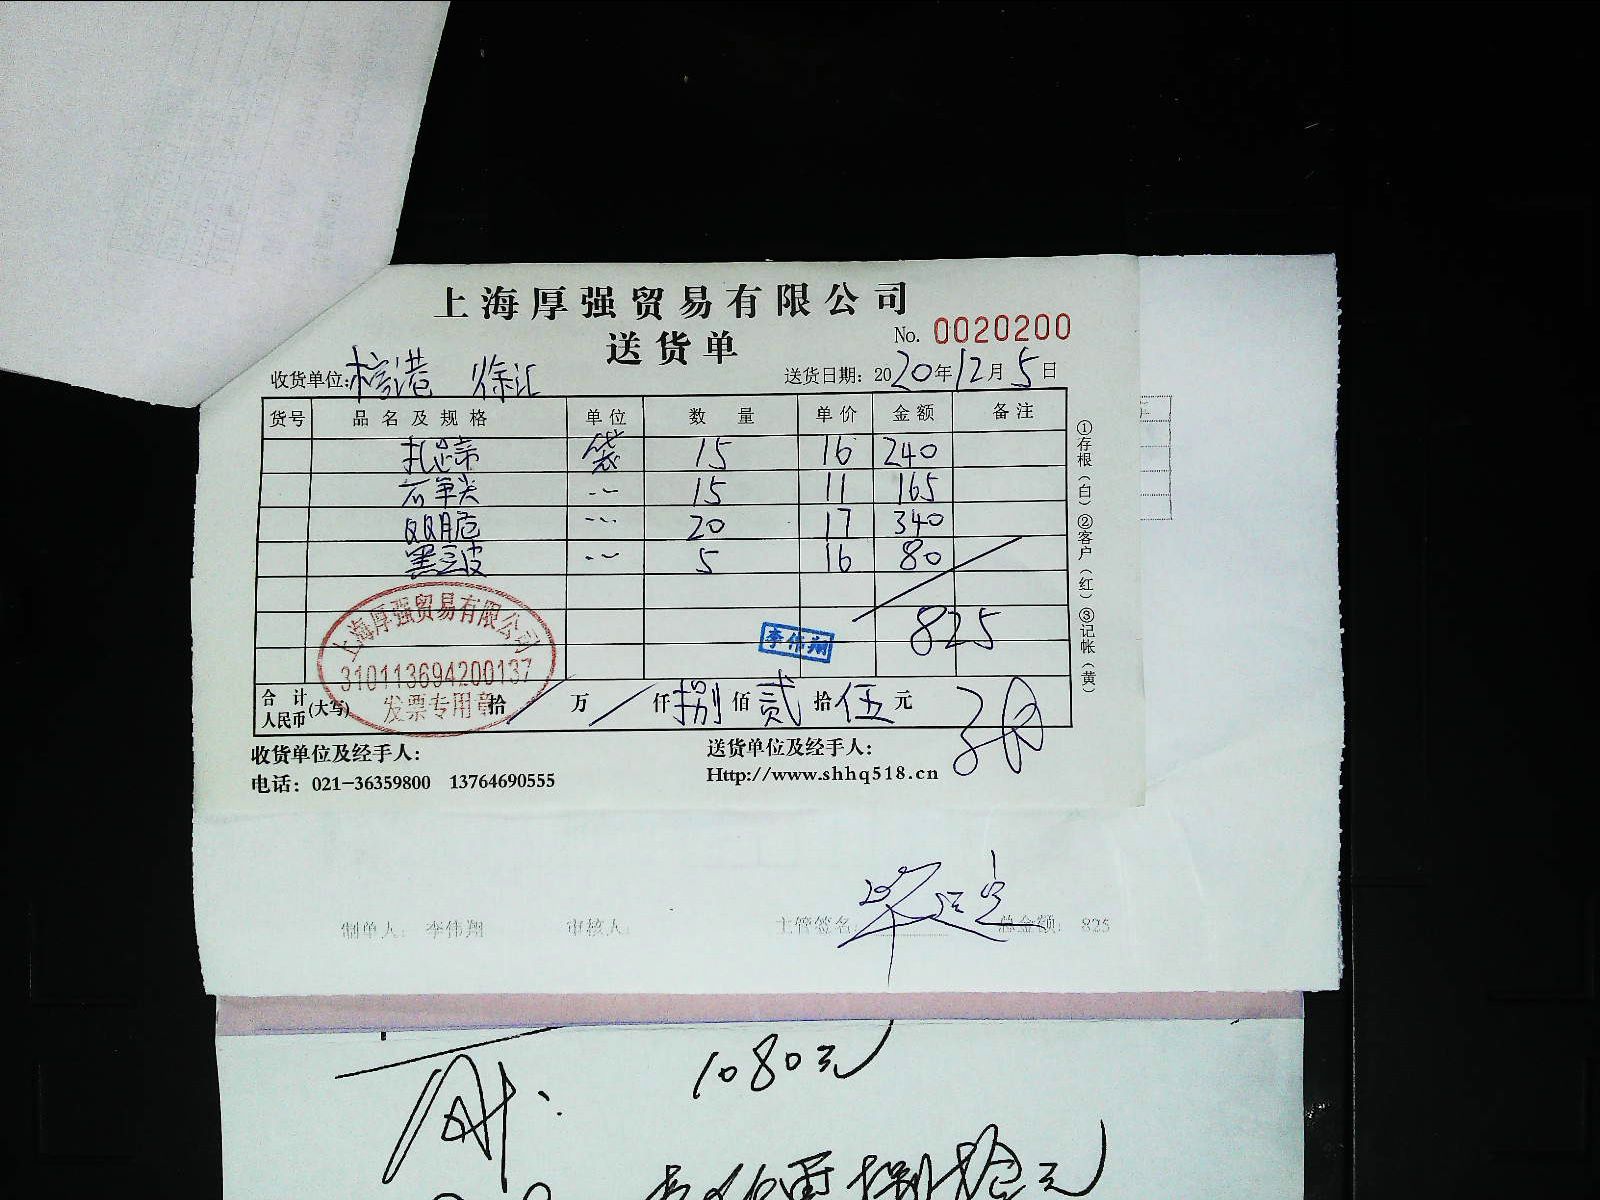 上海厚强贸易有限公司
送货单
No. 0020200
收货单位: 徐汇
送货日期: 2020年12月5日
货号 品名及规格 单位 数量 单价 金额 备注
扎蹄 袋 15 16 240
15 11 165
双脆 20 17 340
黑豆皮 5 16 80
825
李伟翔
上海厚强贸易有限公司
310113694200137
发票专用章
合计人民币(大写) 拾 万 仟捌佰贰拾伍元
收货单位及经手人:
送货单位及经手人:
电话: 021-36359800 13764690555
Http://www.shhq518.cn
①存根(白)②客户(红)③记帐(黄)
制单人: 李伟翔 审核人: 主管签名: 总金额: 825
1080元